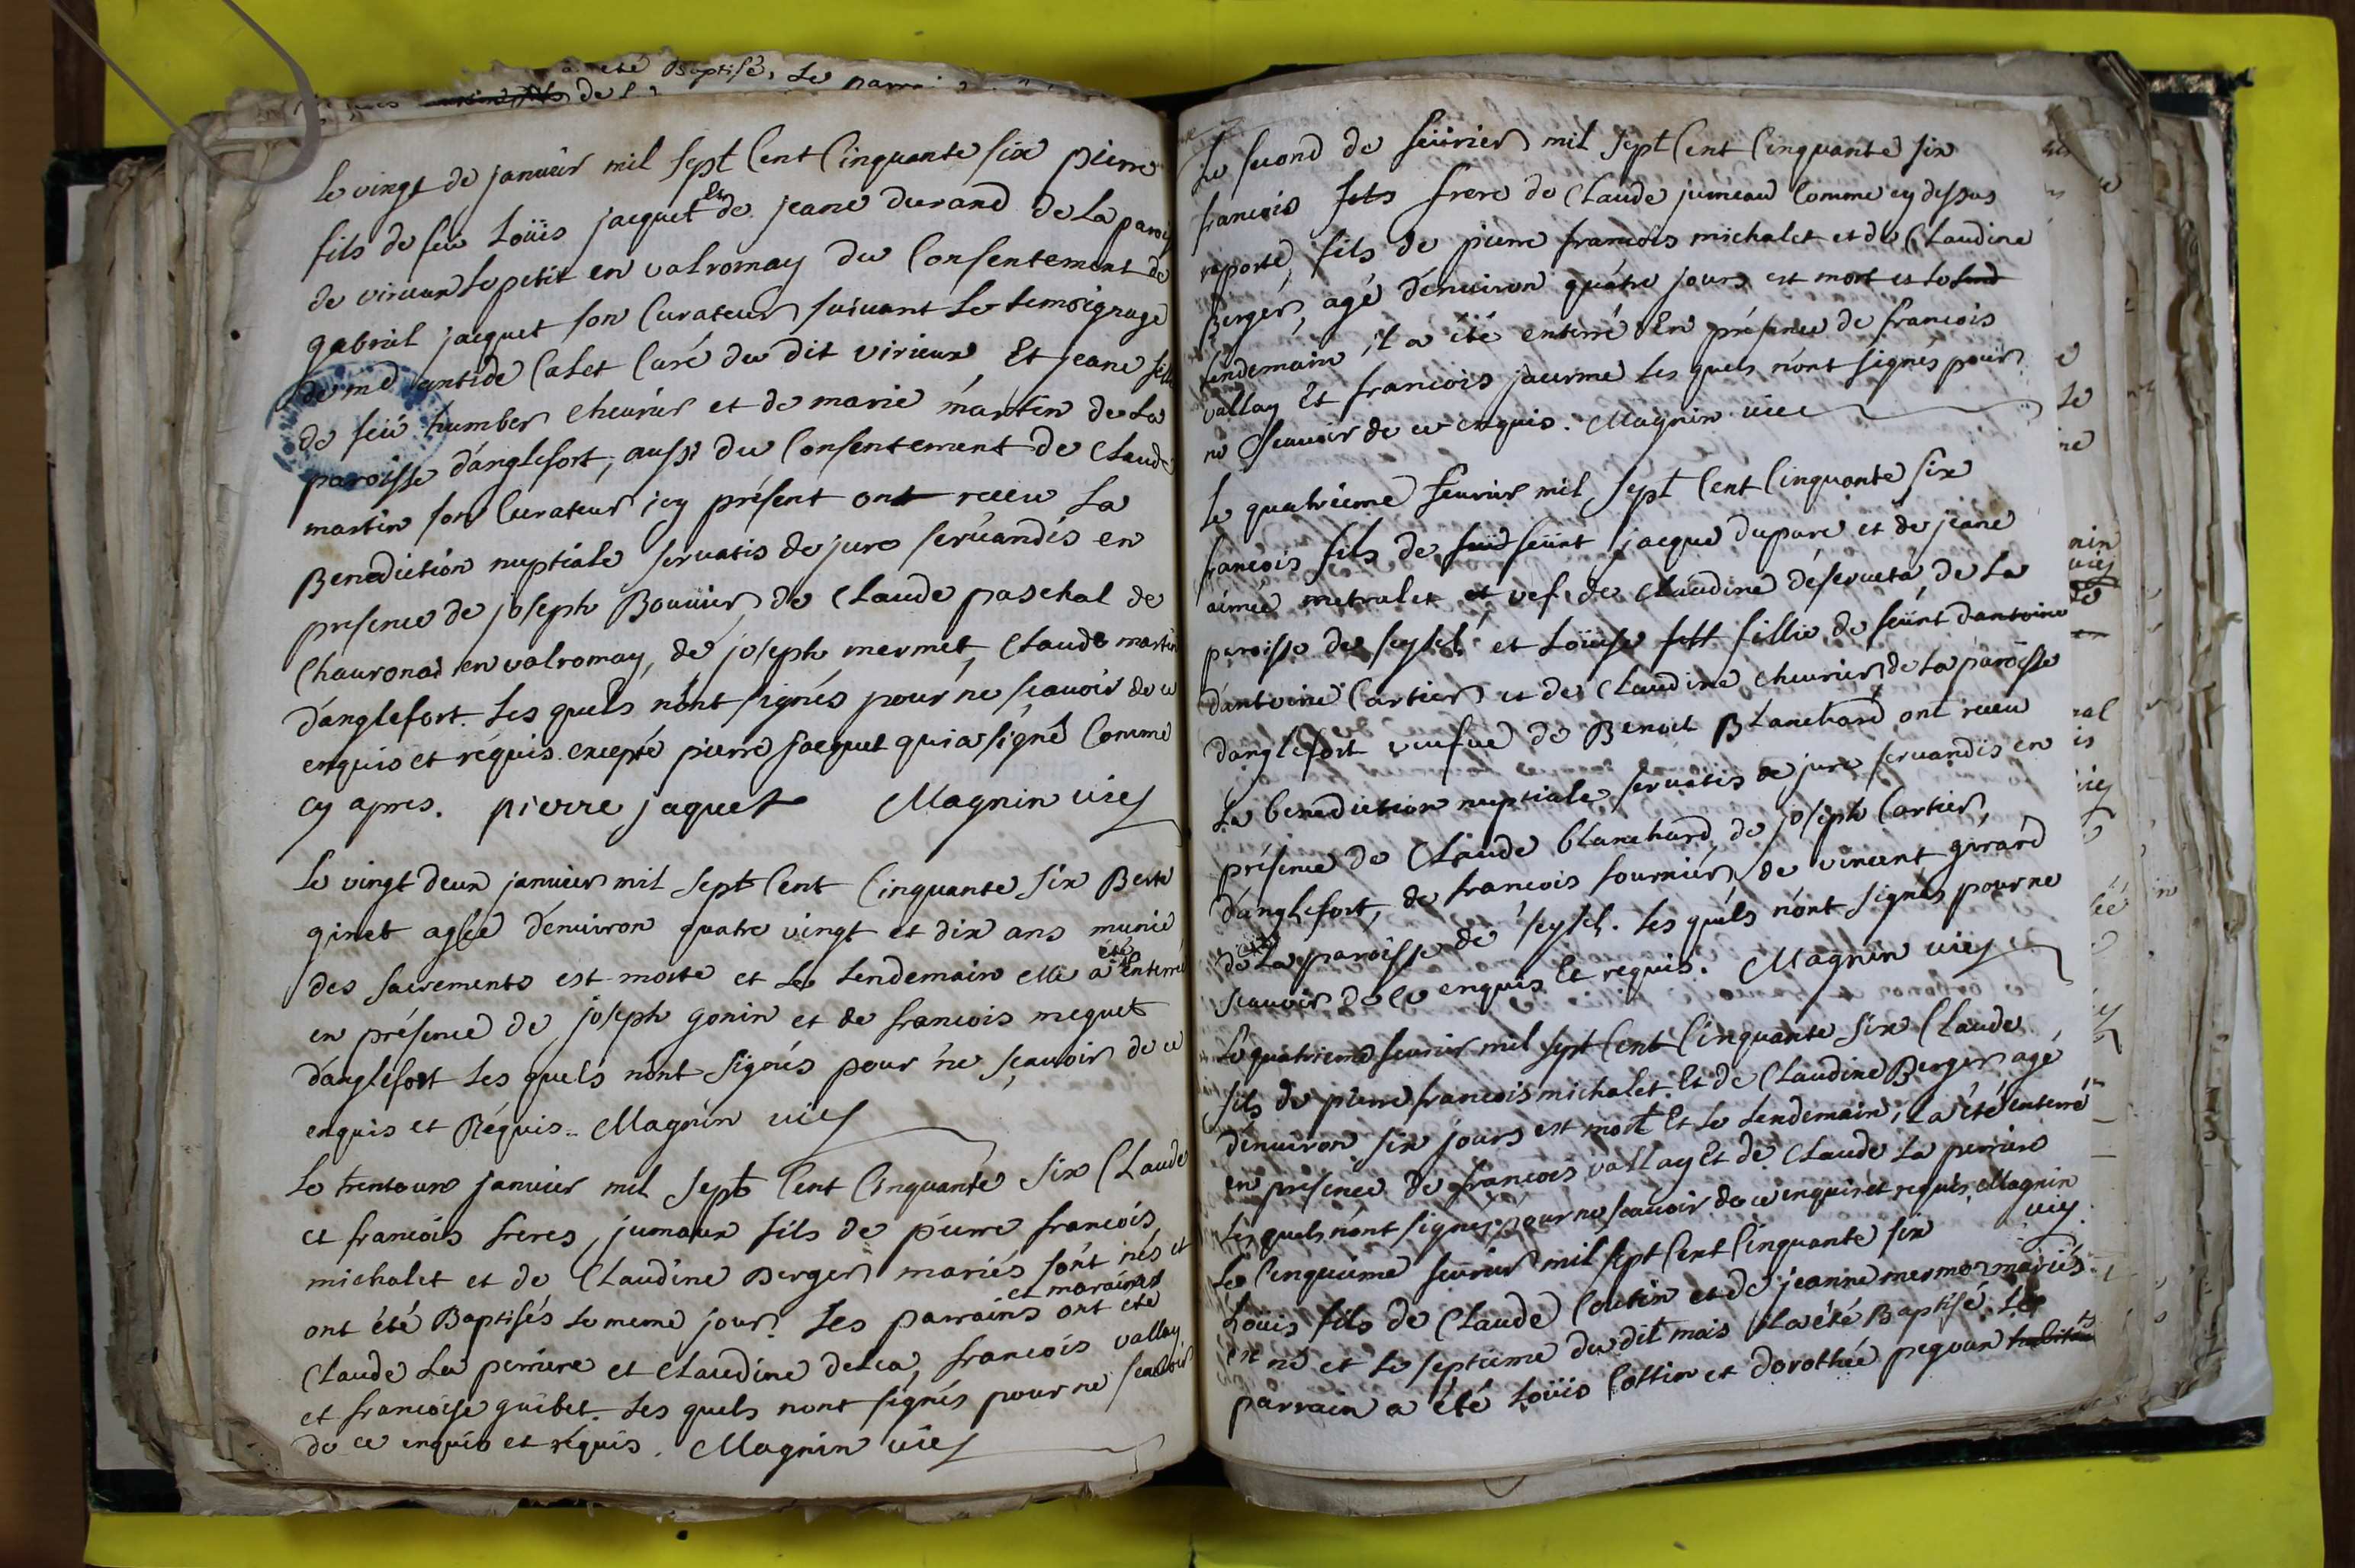 a été Baptisé, Le parrai
de
Le vingt de janvier mil sept Cent Cinquante six pierre
fils de feu Loüis jacquet Et de jeane durand de La paroi
de virieux Le petit en valromay du Consentement de
gabriel jacquet son Curateur suivant Le temoignage
de mr antide Calet Curé du dit virieux, Et jeane fille
de feü humber chevrier et de marie martin de La
paroisse d'anglefort, aussi du Consentement de Claude
martin son Curateur icy présent ont receu La
Benediction nuptiale servatis de jure servandis en
presence de joseph Bouvier, de Claude paschal de
Chavornai en valromay, de joseph mermet, Claude martin
d'anglefort. Les quels n'ont signés pour ne scavoir de ce
enquis et réquis. excepté pierre jacquet qui a signé Comme
cy apres. pierre jaquet Magnin vic
Le vingt deux janvier mil sept Cent Cinquante six Berte
ginet agée d'environ quatre vingt et dix ans munie
des sacrements est morte et Le Lendemain elle a été Enterré
en présence de joseph gonin et de francois meguet
d'anglefort Les quels n'ont signés pour ne scavoir de ce
enquis et Réquis.. Magnin vic
Le trenteun janvier mil sept Cent Cinquante six Claude
et francois freres, jumaux fils de pierre francois
michalet et de Claudine Berger mariés sont nés et
ont été Baptisés Le meme jour. Les parrains et maraines ont eté
Claude La perriere et Claudine delca, francois vallay
et francoise guibet. Les quels n'ont signés pour ne scavoir
de ce enquis et réquis. Magnin vic
Le second de feüvrier mil sept Cent Cinquante six
francois fils frere de Claude jumeau Comme cy dessus
reporté, fils de pierre francois michalet et de Claudine
Berger, agé d'environ quatre jours est mort et Le Lend
Lendemain il a été enterré En présence de francois
vallay Et francois jaurme Les quels n'ont signés pour
ne scavoir de ce enquis. Magnin vic
Le quatrieme fevrier mil sept Cent Cinquante six
francois fils de feu feünt jacque dupare et de jeane
aimée metralet et vef de Claudine déserveta de La
paroisse de seyssel et Loüise fill fillie de feünt d'antoine
d'antoine Cartier et de Claudine chevrier de La paroisse
d'anglefort veufve de Benoit Blanchard ont receu
La benediction nuptiale servatis de jure servandis en
présence de Claude blanchard, de joseph Cartier,
d'anglefort, de francois fournier, de vincent girard
de La paroisse de seyssel. Les quels n'ont signés pour ne
scavoir de ce enquis Et requis. Magnin vic
Le quatrieme fevrier mil sept Cent Cinquante six Claude
fils de pierre francois michalet. Et de Claudine Berger agé
d'environ six jours est mort Et Le Lendemain, il a été enterré
en présence de francois vallay Et de Claude La perriere
Les quels n'ont signés pour ne scavoir de ce enquis et requis, Magnin
vic.
Le Cinquieme fevrier mil sept Cent Cinquante six
Loüis fils de Claude Cottin et de jeanne mermoz mariés
est né et Le septieme du dit mois il a été Baptisé. Le
parrain a été Loüis Cottin et dorothée pegoux habitants